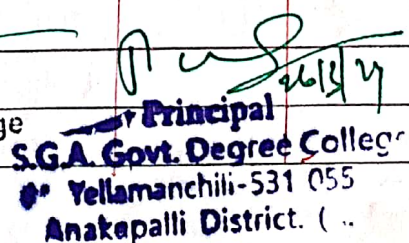 26/3/24
ge
Principal
S.G.A. Govt. Degree College
Yellamanchili-531 055
Anakapalli District. (